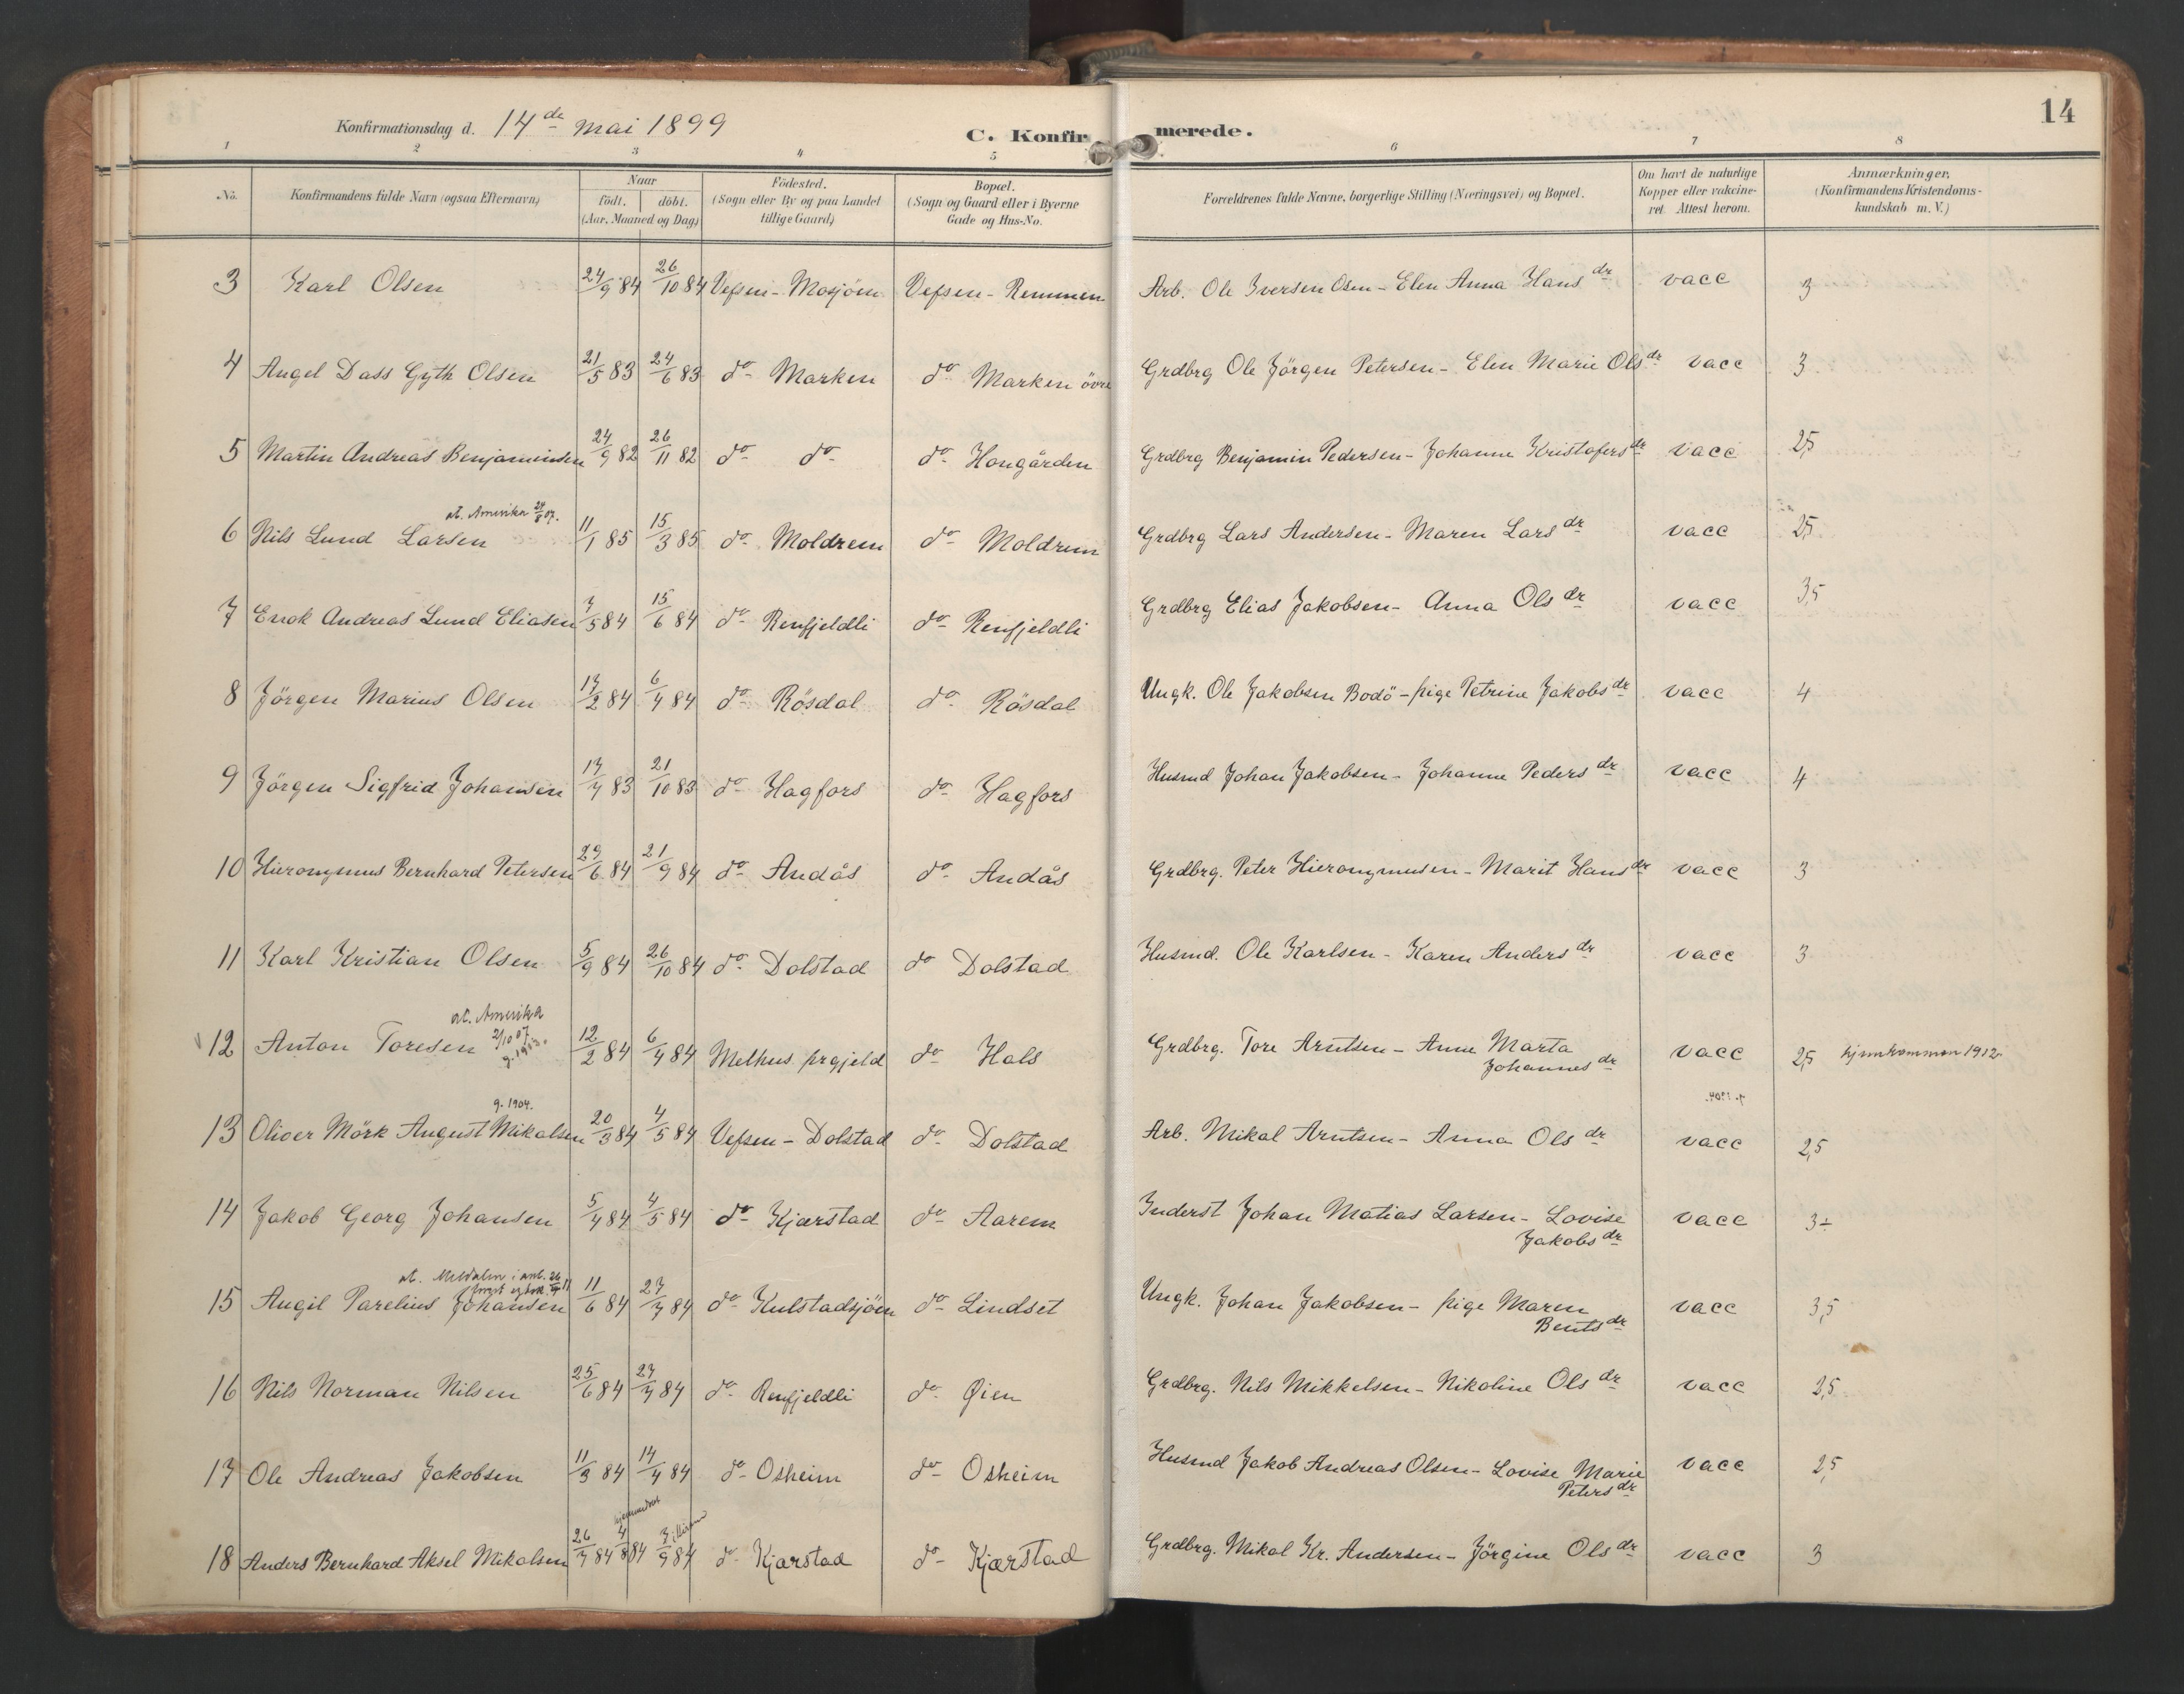 14
Konfirmationsdag d. 14de mai 1899
C. Konfirmerede.
1 2 3 4 5 6 7 8
No. Konfirmandens fulde Navn (ogsaa Efternavn) Naar födt. döbt. (Aar, Maaned og Dag) Födested. (Sogn eller By og paa Landet tillige Gaard) Bopæl. (Sogn og Gaard eller i Byerne Gade og Hus-No. Forældrenes fulde Navne, borgerlige Stilling (Næringsvei) og Bopæl. Om havt de naturlige Kopper eller vakcineret. Attest herom. Anmærkninger, (Konfirmandens Kristendomskundskab m. V.)
3 Karl Olsen 24/9 84 26/10 84 Vefsen - Mosjöen Vefsen - Remmen Arb. Ole Iversen Osen - Elen Anna Hansdr vacc 3
4 Angel Dass Gyth Olsen 21/5 83 24/6 83 do Marken do Marken övre Grdbrg Ole Jörgen Petersen - Elen Marie Olsdr vacc 3
5 Martin Andreas Benjaminsen 24/9 82 26/11 82 do do do Hougården Grdbrg Benjamin Pedersen - Johanne Kristofersdr vacc 2,5
at. Amerika 29/8 07.
6 Nils Lund Larsen 11/1 85 15/3 85 do Moldrem do Moldrem Grdbrg Lars Andersen - Maren Larsdr vacc 2,5
7 Enok Andreas Lund Eliasen 7/5 84 15/6 84 do Renfjeldli do Renfjeldli Grdbrg Elias Jakobsen - Anna Olsdr vacc 3,5
8 Jörgen Marius Olsen 17/2 84 6/4 84 do Rösdal do Rösdal Ungk. Ole Jakobsen Bodö - pige Petrine Jakobsdr vacc 4
9 Jörgen Sigfrid Johansen 17/7 83 21/10 83 do Hagfors do Hagfors Husmd Johan Jakobsen - Johanne Pedersdr vacc 4
10 Hieronymus Bernhard Petersen 29/6 84 21/9 84 do Andås do Andås Grdbrg. Peter Hieronymusen - Marit Hansdr vacc 3
11 Karl Kristian Olsen 5/9 84 26/10 84 do Dolstad do Dolstad Husmd. Ole Karlsen - Karen Andersdr vacc 3
at. Amerika
2/10 07.
g. 1913.
12 Anton Toresen 12/2 84 6/4 84 Melhus prgjeld do Hals Grdbrg. Tore Arntsen - Anne Marta Johannesdr vacc 2,5 hjemkommen 1912
g. 1904.
13 Oliver Mörk August Mikalsen 20/3 84 4/5 84 Vefsen - Dolstad do Dolstad Arb. Mikal Arntsen - Anna Olsdr vacc 2,5
14 Jakob Georg Johansen 5/4 84 4/5 84 do Kjærstad do Aarem Inderst Johan Matias Larsen - Lovise Jakobsdr vacc 3 ÷
15 Augil Parelius Johansen 11/6 84 27/7 84 do Kulstadsjöen do Lindset Ungk. Johan Jakobsen - pige Maren Bentsdr vacc 3,5
16 Nils Norman Nilsen 25/6 84 27/7 84 do Renfjeldli do Øien Grdbrg. Nils Mikkelsen - Nikoline Olsdr vacc 2,5
17 Ole Andreas Jakobsen 11/3 84 14/4 84 do Osheim do Osheim Husmd Jakob Andreas Olsen - Lovise Marie Petersdr vacc 2,5
18 Anders Bernhard Aksel Mikalsen 26/7 84 4/8 84 7/9 84 do Kjærstad do Kjærstad Grdbrg. Mikal Kr. Andersen - Jörgine Olsdr vacc 3